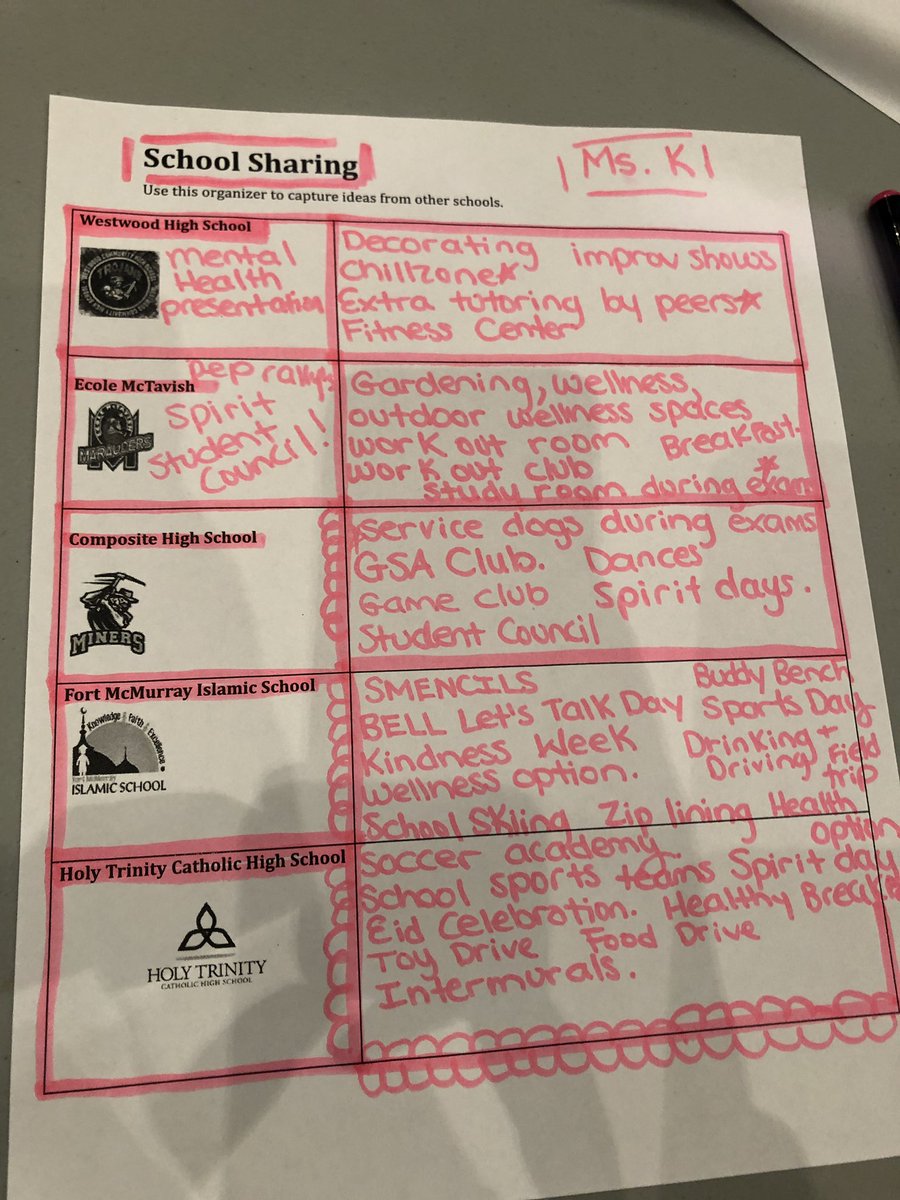 School Sharing
Ms. K
Use this organizer to capture ideas from other schools.
Westwood High School
mental
Health
presentation
Decorating improv shows
Chillzone
Extra tutoring by peers
Fitness Center
Ecole McTavish
Pep rallys
Spirit
Student
Council!
MARAUDERS
Gardening, wellness,
outdoor wellness spaces
work out room Breakfast.
work out club
Study room during exam
Composite High School
MINERS
service dogs during exams
GSA Club. Dances
Game club Spirit days.
Student Council
Fort McMurray Islamic School
Knowledge Faith Excellence
Fort McMurray
ISLAMIC SCHOOL
SMENCILS Buddy Bench
BELL Let's Talk Day Sports Day
Kindness Week Drinking +
Wellness option. Driving Field
trip
School Skiing Zip lining Health
option
Holy Trinity Catholic High School
HOLY TRINITY
CATHOLIC HIGH SCHOOL
Soccer academy.
School sports teams Spirit day
Eid Celebration. Healthy
Toy Drive Food Drive
Intermurals.